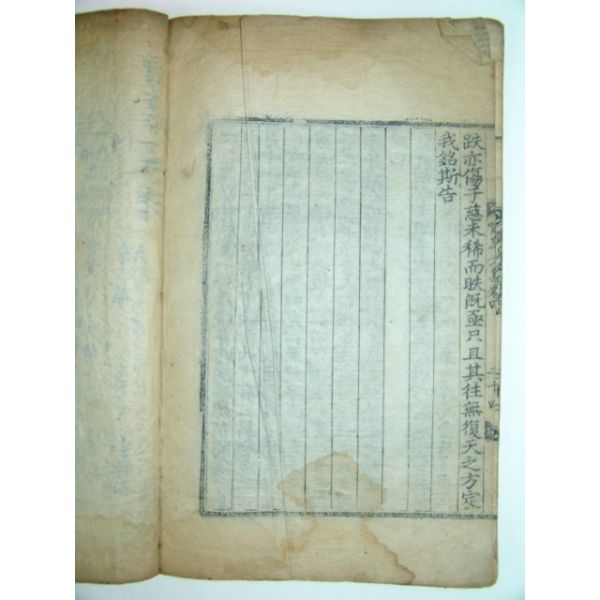 跌亦傷子慈未稀而昳既亟只且其往無復天之方定
我銘斯告
二十四